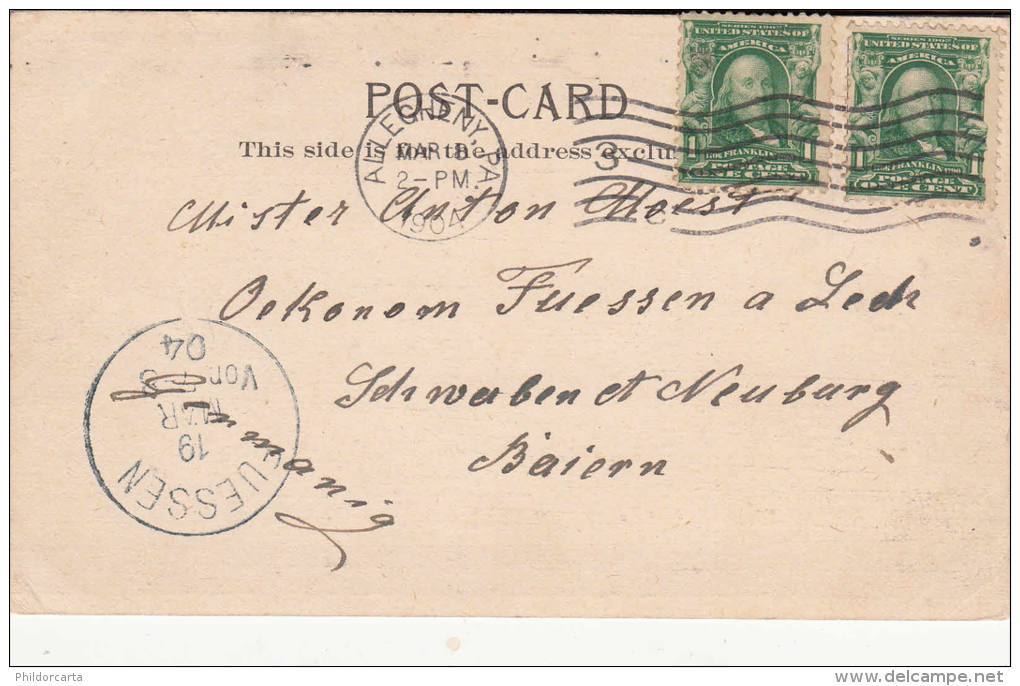 POST-CARD
This side is for the address exclu
ALLEGHENY, PA.
MAR 8
2-PM
1904
3
SERIES 1902
UNITED STATES OF
AMERICA
1 FRANKLIN 1
POSTAGE
ONE CENT
SERIES 1902
UNITED STATES OF
AMERICA
1 FRANKLIN 1
POSTAGE
ONE CENT
Mister Anton Moest
Oekonom Fuessen a Lech
Schwaben et Neuburg
Baiern
Germanig
FUESSEN
19
MAR
Vor
04
Phildorcarta
delcampe.net